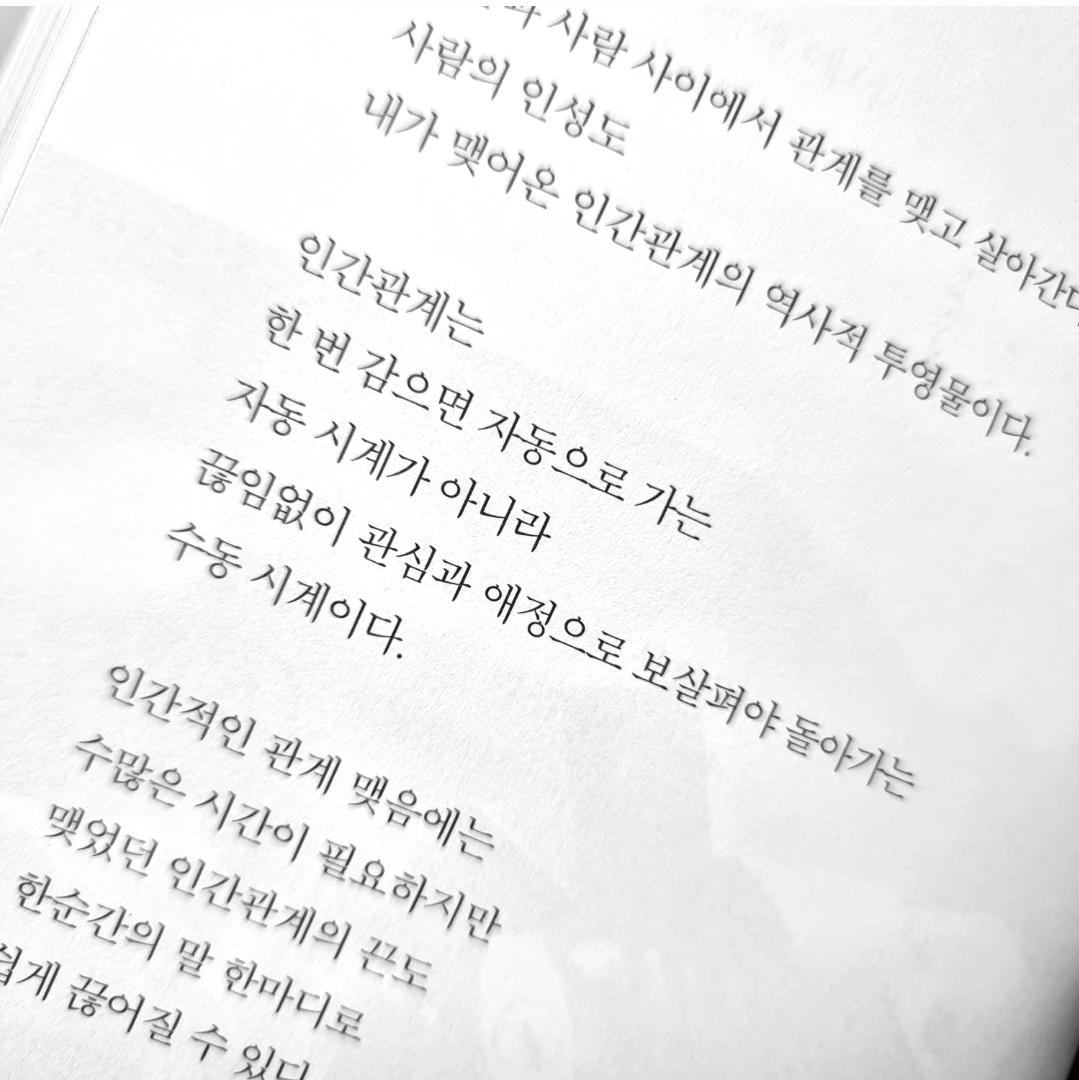 사람 사이에서 관계를 맺고 살아간다
사람의 인성도
내가 맺어온 인간관계의 역사적 투영물이다.
인간관계는
한 번 감으면 자동으로 가는
자동 시계가 아니라
끊임없이 관심과 애정으로 보살펴야 돌아가는
수동 시계이다.
인간적인 관계 맺음에는
수많은 시간이 필요하지만
맺었던 인간관계의 끈도
한순간의 말 한마디로
쉽게 끊어질 수 있다